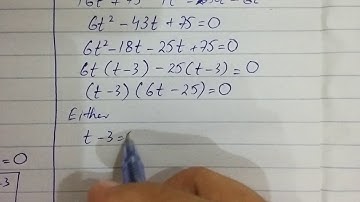 6t² - 43t + 75 = 0
6t² - 18t - 25t + 75 = 0
6t (t - 3) - 25(t - 3) = 0
(t - 3) (6t - 25) = 0
Either
t - 3 =
= 0